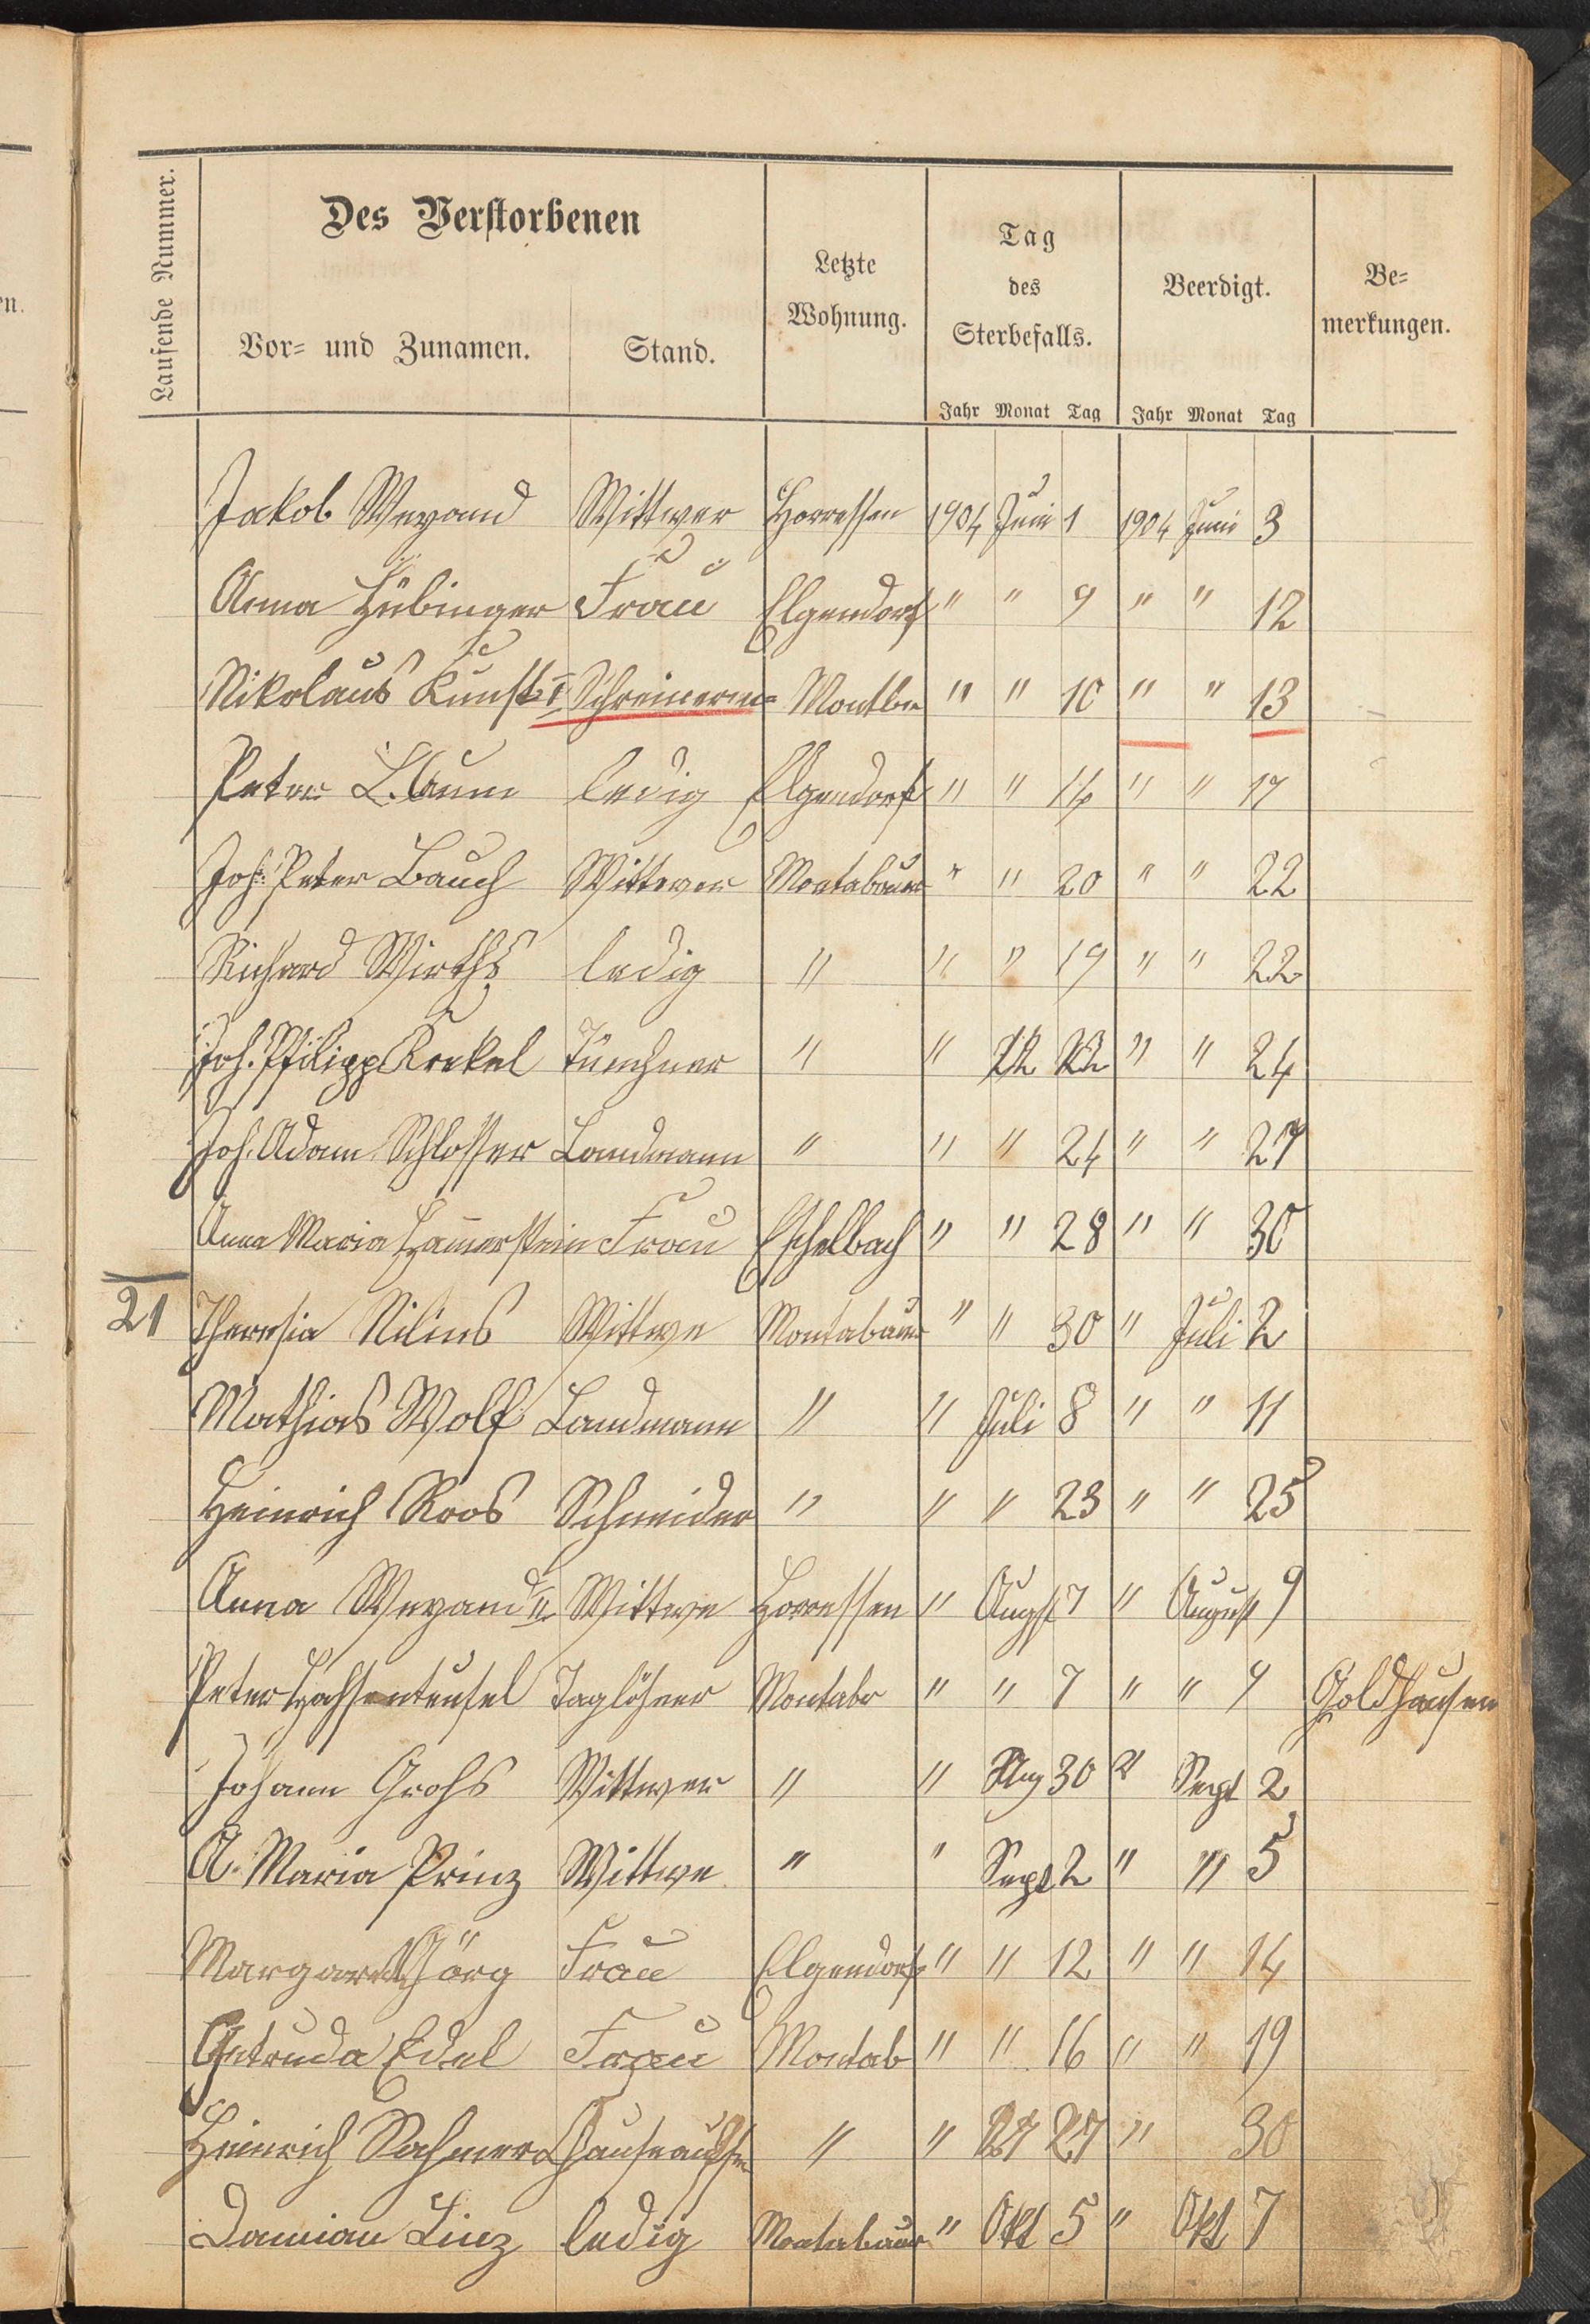 Laufende Nummer.
Des Verstorbenen
Vor- und Zunamen.
Stand.
Letzte
Wohnung.
Tag
des
Sterbefalls.
Jahr Monat Tag
Beerdigt.
Jahr Monat Tag
Be-
merkungen.
en.
Jakob Weyand Wittwer Horressen 1904 Juni 1 1904 Juni 3
Anna Hübinger Frau Elgendorf " " 9 " " 12
Nikolaus Kunst II Schreinerm Montbr " " 10 " " 13
Peter ledig Elgendorf " " 14 " " 17
Joh. Peter Bauch Wittwer Montabaur " " 20 " " 22
Richard Wirths ledig " " " 19 " " 22
Joh. Philipp Krekel Tünchner " " 22 22 " " 24
Joh. Adam Schlosser Landmann " " " 24 " " 27
Anna Maria Ham̄erstein Frau Eschelbach " " 28 " " 30
21 Theresia Nilius Wittwe Montabaur " " 30 " Juli 2
Mathias Wolf Landmann " " Juli 8 " " 11
Heinrich Roos Schneider " " " 23 " " 25
Anna Weyand II Wittwe Horressen " Augst 7 " August 9
Peter Hassenteufel Taglöhner Montabr " " 7 " " 9 Goldhausen
Johann Grohs Wittwer " " Aug 30 " Sept 2
A. Maria Prinz Wittwe " " Sept 2 " " 5
Margareth Görg Frau Elgendorf " " 12 " " 14
Getruda Edel Frau Montab " " 16 " " 19
Heinrich Sahmer " " 27 27 " 30
Damian Linz ledig Montabaur " Okt 5 " Okt 7